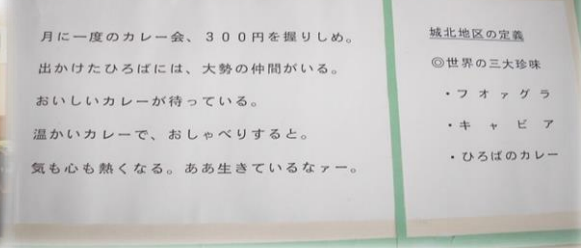 月に一度のカレー会、３００円を握りしめ。
出かけたひろばには、大勢の仲間がいる。
おいしいカレーが待っている。
温かいカレーで、おしゃべりすると。
気も心も熱くなる。ああ生きているなァー。
城北地区の定義
◎世界の三大珍味
・フォァグラ
・キャビア
・ひろばのカレー